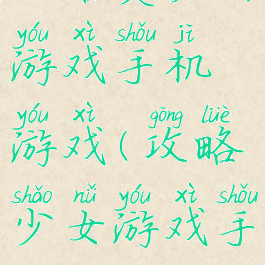 yóu xì shǒu jī
游戏手机
yóu xì gōng lüè
游戏(攻略
shǎo nǚ yóu xì shǒu
少女游戏手